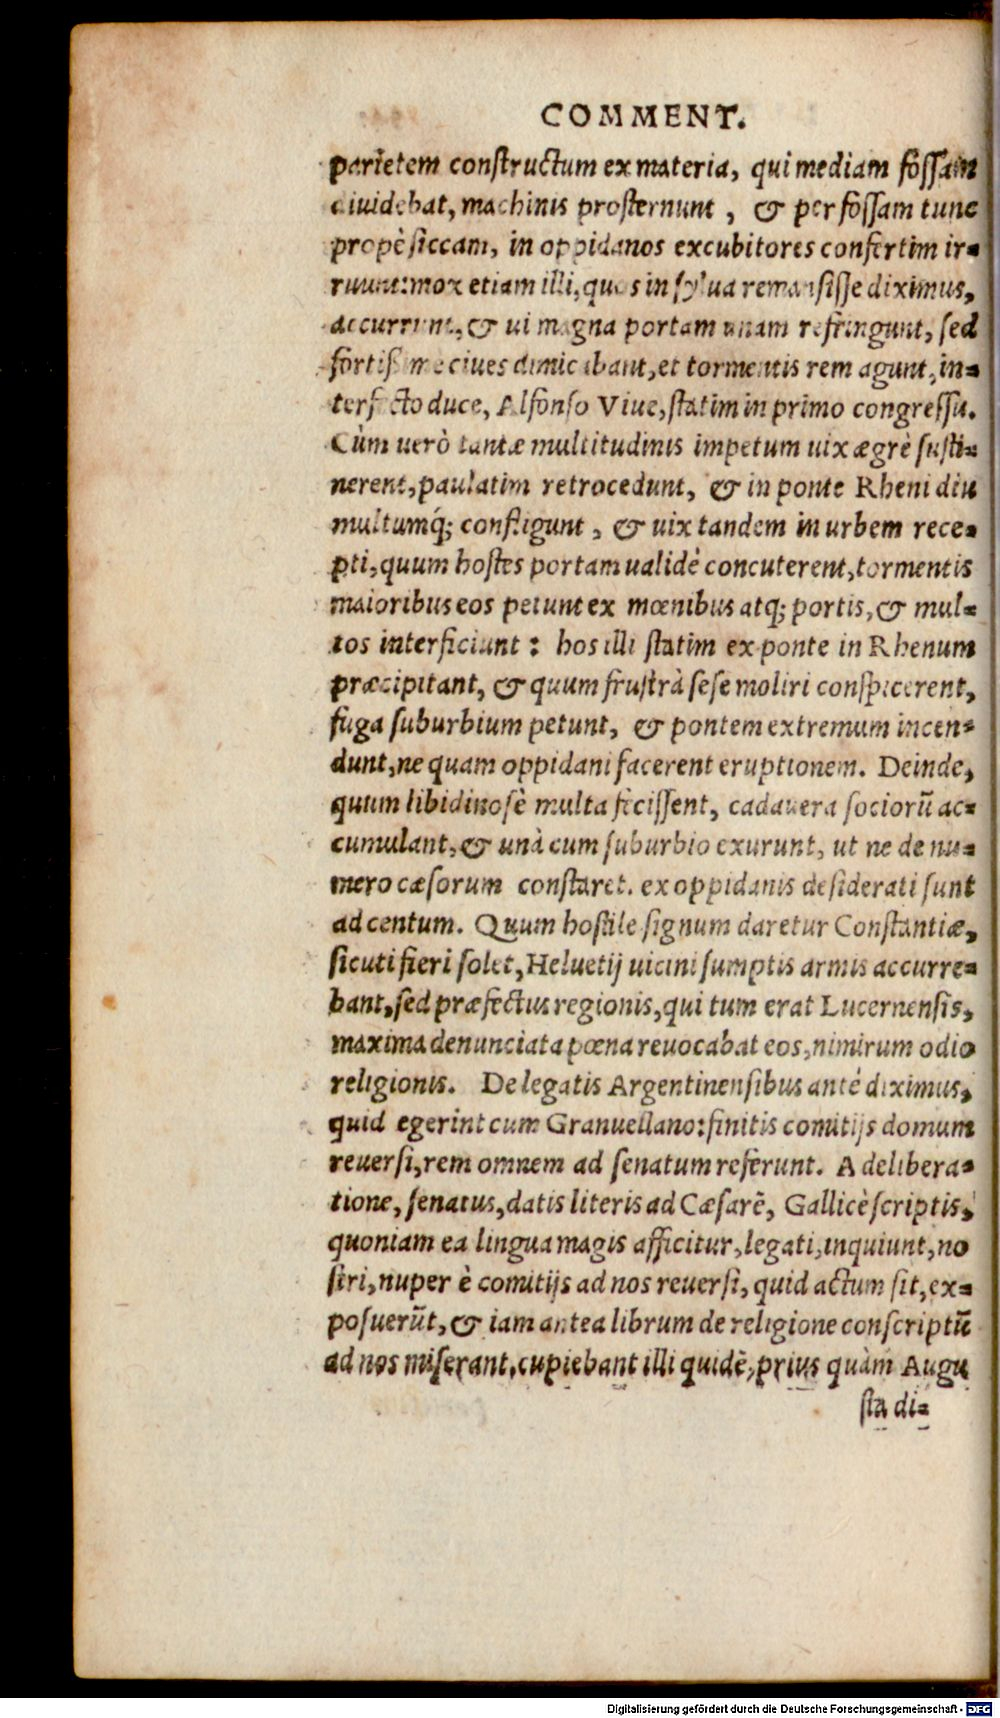 COMMENT.
parietem constructum ex materia, qui mediam fossam
diuidebat, machinis prosternunt, & per fossam tunc
propè siccam, in oppidanos excubitores confertim ir-
ruunt: mox etiam illi, quos in sylua remansisse diximus,
accurrunt, & ui magna portam unam refringunt, sed
fortissime ciues dimicabant, et tormentis rem agunt, in-
terfecto duce, Alfonso Viue, statim in primo congressu.
Cùm uerò tantæ multitudinis impetum uix ægrè susti-
nerent, paulatim retrocedunt, & in ponte Rheni diu
multumq́; confligunt, & uix tandem in urbem rece-
pti, quum hostes portam ualidè concuterent, tormentis
maioribus eos petunt ex mœnibus atq; portis, & mul-
tos interficiunt: hos illi statim ex ponte in Rhenum
præcipitant, & quum frustrà sese moliri conspicerent,
fuga suburbium petunt, & pontem extremum incen-
dunt, ne quam oppidani facerent eruptionem. Deinde,
quum libidinosè multa fecissent, cadauera sociorũ ac-
cumulant, & unà cum suburbio exurunt, ut ne de nu-
mero cæsorum constaret. ex oppidanis desiderati sunt
ad centum. Quum hostile signum daretur Constantiæ,
sicuti fieri solet, Heluetij uicini sumptis armis accurre-
bant, sed præfectus regionis, qui tum erat Lucernensis,
maxima denunciata pœna reuocabat eos, nimirum odio
religionis. De legatis Argentinensibus antè diximus,
quid egerint cum Granuellano: finitis comitijs domum
reuersi, rem omnem ad senatum referunt. A delibera-
tione, senatus, datis literis ad Cæsarẽ, Gallicè scriptis,
quoniam ea lingua magis afficitur, legati, inquiunt, no
stri, nuper è comitijs ad nos reuersi, quid actum sit, ex-
posuerũt, & iam antea librum de religione conscriptũ
ad nos miserant, cupiebant illi quidẽ, prius quàm Augu
sta di-
Digitalisierung gefördert durch die Deutsche Forschungsgemeinschaft - DFG